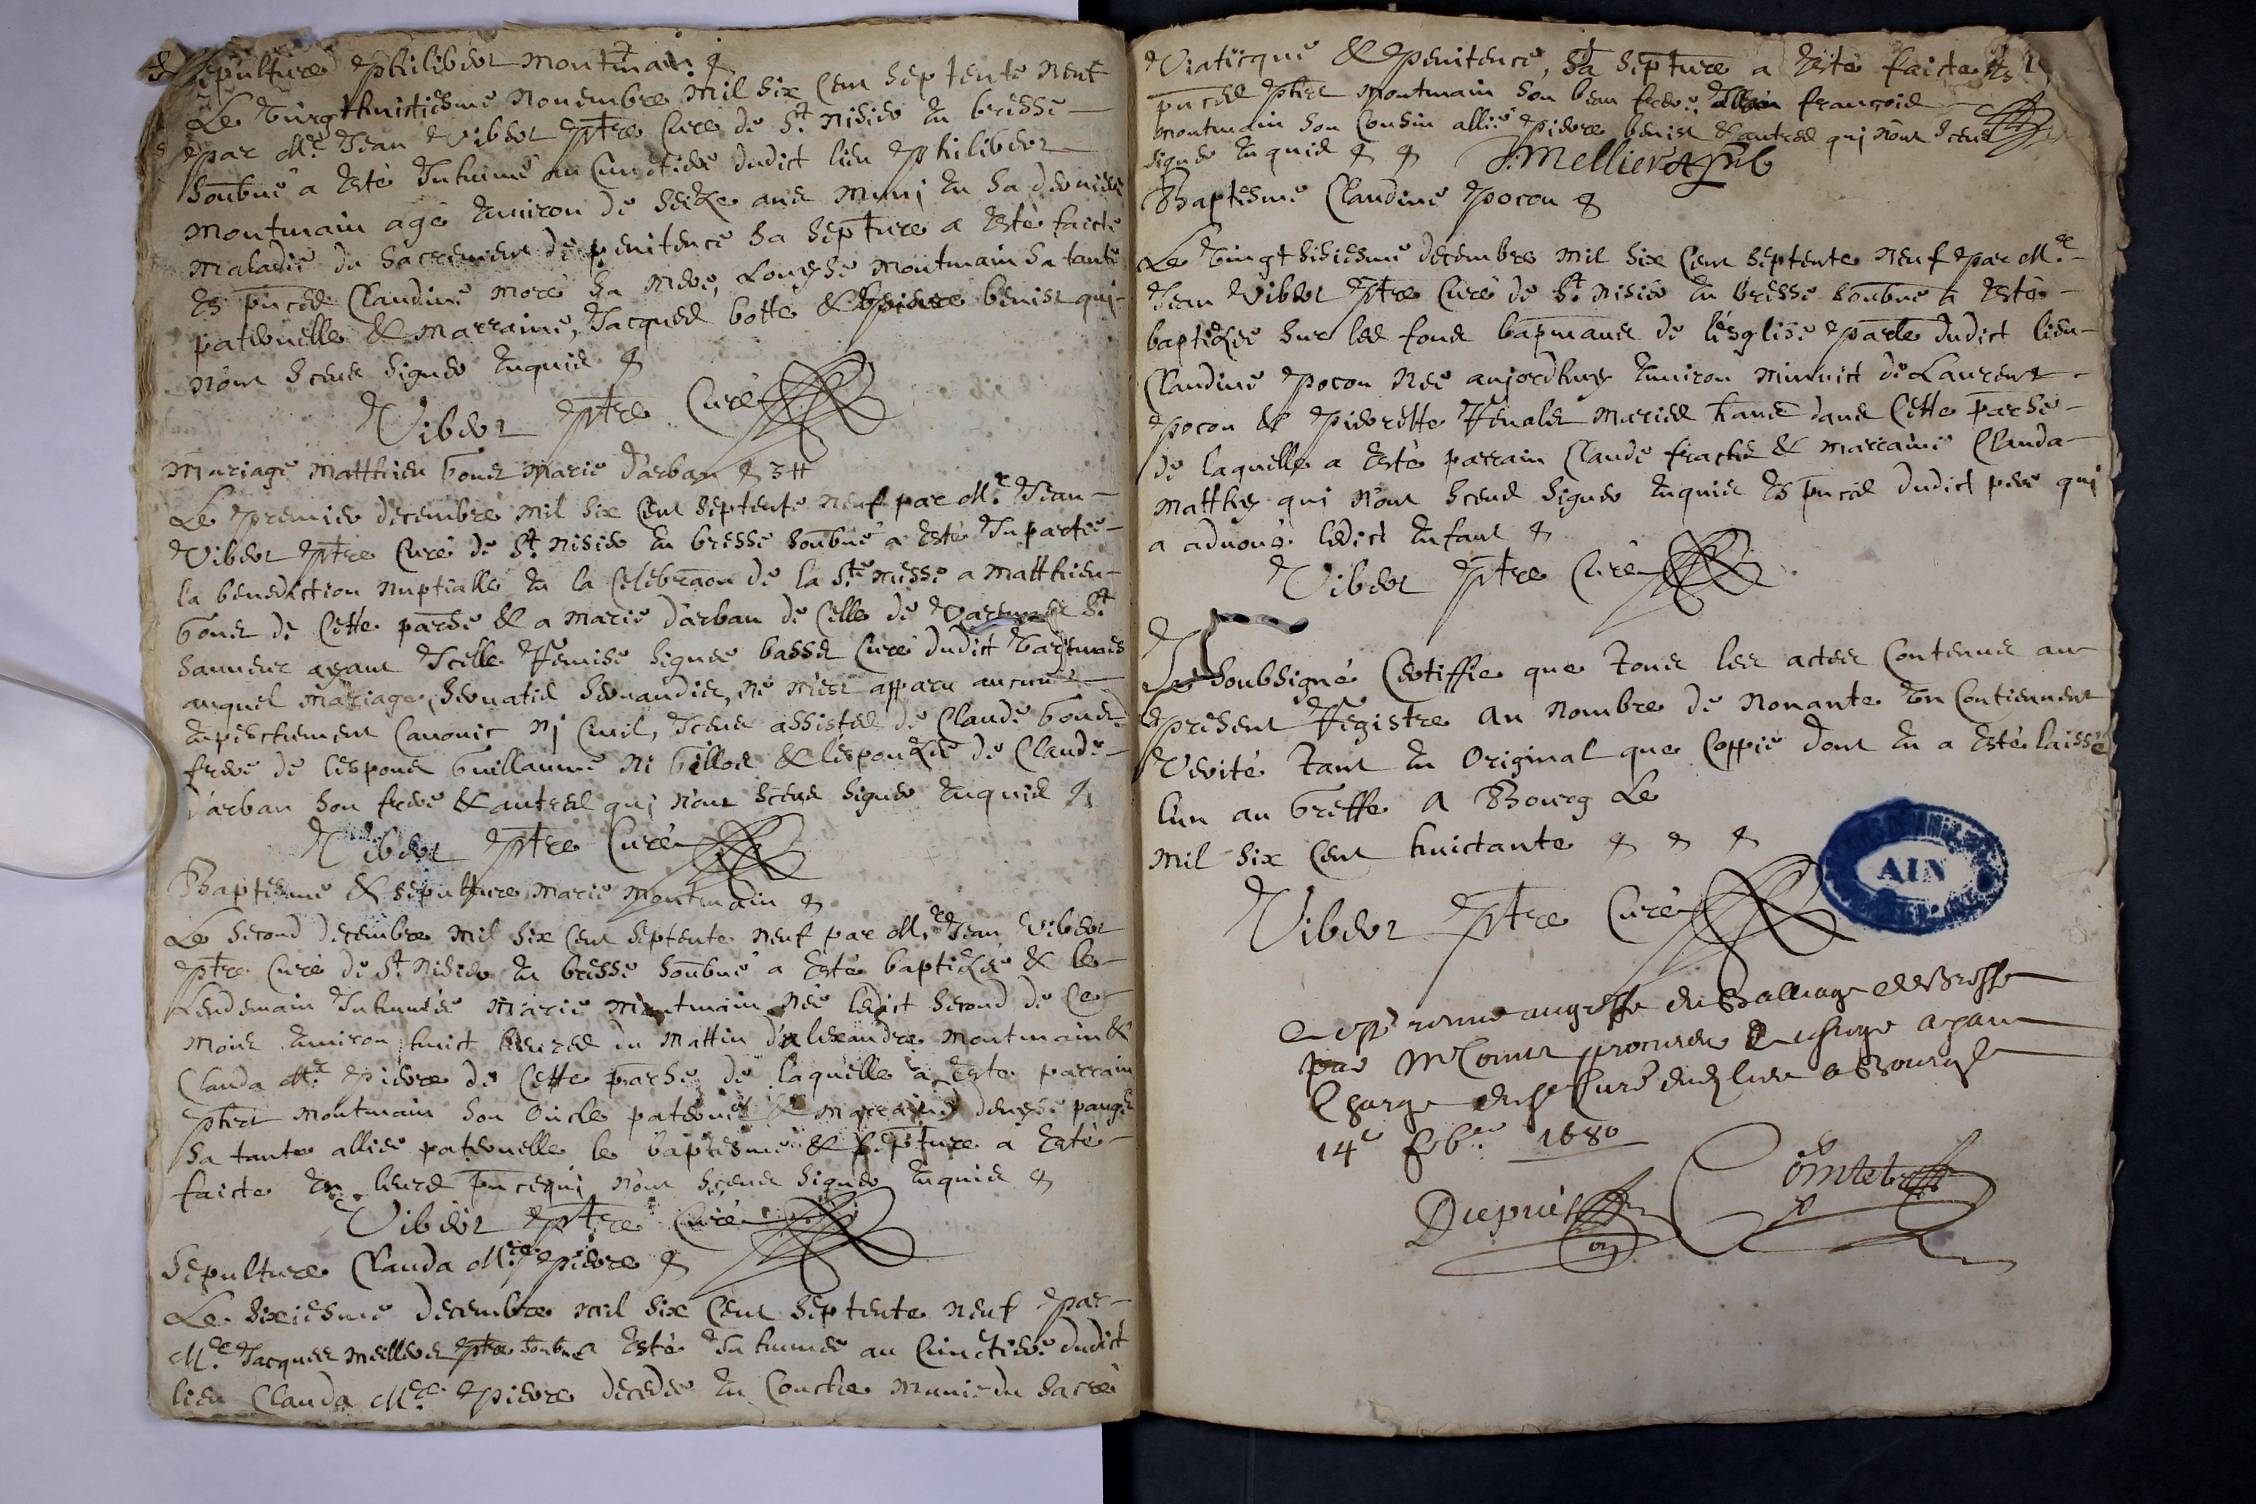 Sepulture Philibert Montmain
Le Vingthuictiesme Novembre Mil six Cent septente neuf
par Mre Jean Vibert ptre Curé de St Nisier En bresse
soubné a Esté Inhumé au Cimetiere dudict lieu Philibert
Montmain agé Environ de seize ans Muny En sa derniere
Maladie du Sacrement de penitence sa septure a Esté faicte
Es pnces Claudine Moré sa Mere, Louyse Montmain sa tante
paternelle & Marraine, Jacques botte & pierre benist qui
n'ont sceus signer Enquis
Vibert ptre Curé
Mariage Matthieu bond Marie d'arban
Le premier decembre Mil six Cent septente neuf par Mre Jean
Vibert ptre Curé de St Nisier En bresse soubné a Esté Inpartie
la benediction nuptialle En la Celebraon de la Ste Messe a Matthieu
bond de Cette parse & a Marie d'arban de Celle de St
sauveur ayant Icelle Remise signée basset Curé dudict
auquel Mariage, servatis servandis, ne m'est apparu aucun
Empeschement Canonic ny Civil, Iceux assistes de Claude bond
frere de l'espoux Guillaume & l'espouzée de Claude
d'arban son frere & autres qui n'ont sceus signer Enquis
Vibert ptre Curé
Baptesme & sepulture Marie Montmain
Le second decembre Mil six Cent septente neuf par Mre Jean Vibert
ptre Curé de St Nisier En bresse soubné a Esté baptizée & le
Lendemain Inhumée Marie Montmain née ledict second de Ce
Mois Environ huict heures du Mattin d'alexandre Montmain &
Clauda Mre pierre de Cette parse de laquelle a Esté parrain
Montmain son Oncle paternel & Marraine denyse
sa tante alliée paternelle le baptesme & septure a Esté
faicte En leurs pnce qui n'ont sceus signer Enquis
Vibert ptre Curé
Sepulture Clauda Mre pierre
Le sixiesme decembre Mil six Cent septente neuf par
Mre Jacques Mellier ptre soubné a Esté Inhumée au Cimetiere dudict
lieu Clauda Mre pierre decedée En Couche Munie du sacré
Viaticque & penitence, sa septure a Esté faicte Es
pnces Montmain son beau frere, françois
Montmain son Cousin allié pierre benist & autres qui n'ont sceus
signer Enquis J. Mellier
Baptesme Claudine pocon
Le Vingtsisiesme decembre Mil six Cent septente neuf par Mre
Jean Vibert ptre Curé de St Nisier En bresse soubné a Esté
baptizée sur les fons bapmaux de l'esglise parle dudict lieu
Claudine pocon née aujordhuy Environ Minuict de Laurent
pocon & pierrette Renald Mariés dans Cette parse
de laquelle a Esté parrain Claude frache & Marraine Clauda
Matthy qui n'ont sceus signer Enquis Es pnces dudict pere qui
a advoué ledict Enfant
Vibert ptre Curé
Je soubsigné Certiffie que Tous les actes Contenus au
present Registre au Nombre de Nonante Un Contiennent
Verité Tant En Original que Coppie dont En a Esté laissé
l'un au Greffe a Bourg Le
Mil six Cent huictante
Vibert ptre Curé
AIN
remis au greffe du Balliage de Bresse
par Mr Comte procureur ayant
Charge du sr Curé dudt lieu a Bourg le
14e febr 1680
Dupuis Comte